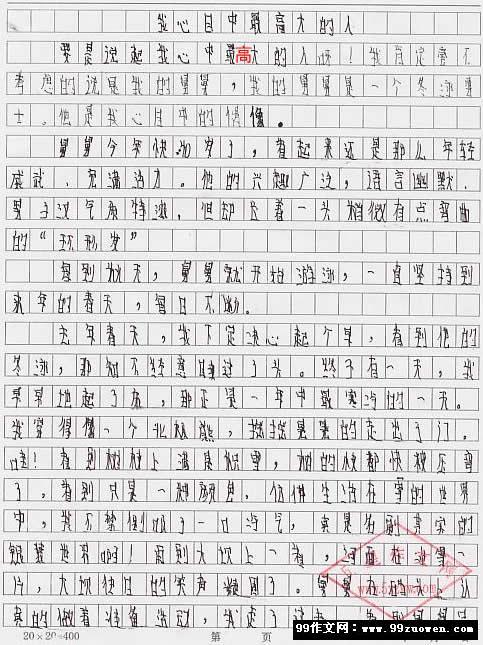 我心目中最高大的人
要是说起我心中最高大的人呀！我肯定会不
考虑的说是我的舅舅，我的舅舅是一个冬泳勇
士。他是我心目中的偶像。
舅舅今年快30岁了，看起来还是那么年轻
威武、充满活力。他的兴趣广泛，语言幽默，
男子汉气质特浓，但却长着一头稍微有点弯曲
的“环形发”
每到秋天，舅舅就开始游泳，一直坚持到
来年的春天，每日不
去年春天，我下定决心起个早，看到他的
冬泳，那知不经意睡过了头。终于有一天，我
早早地起了床，那正是一年中最寒冷的一天。
我穿得像一个北极熊，摇摇晃晃的走出了门。
哇！看到树枝上满是积雪，树的枝都快被压弯
了。看到只是一种颜色。仿佛生活在雪的世界
中，我不禁倒吸了一口冷气，真是名副其实的
银装世界啊！来到大坝上一看，河面
片，大坝使的笑声
真的做着准备活动，我走了过去
20×20=400
第 页
99作文网：www.99zuowen.com